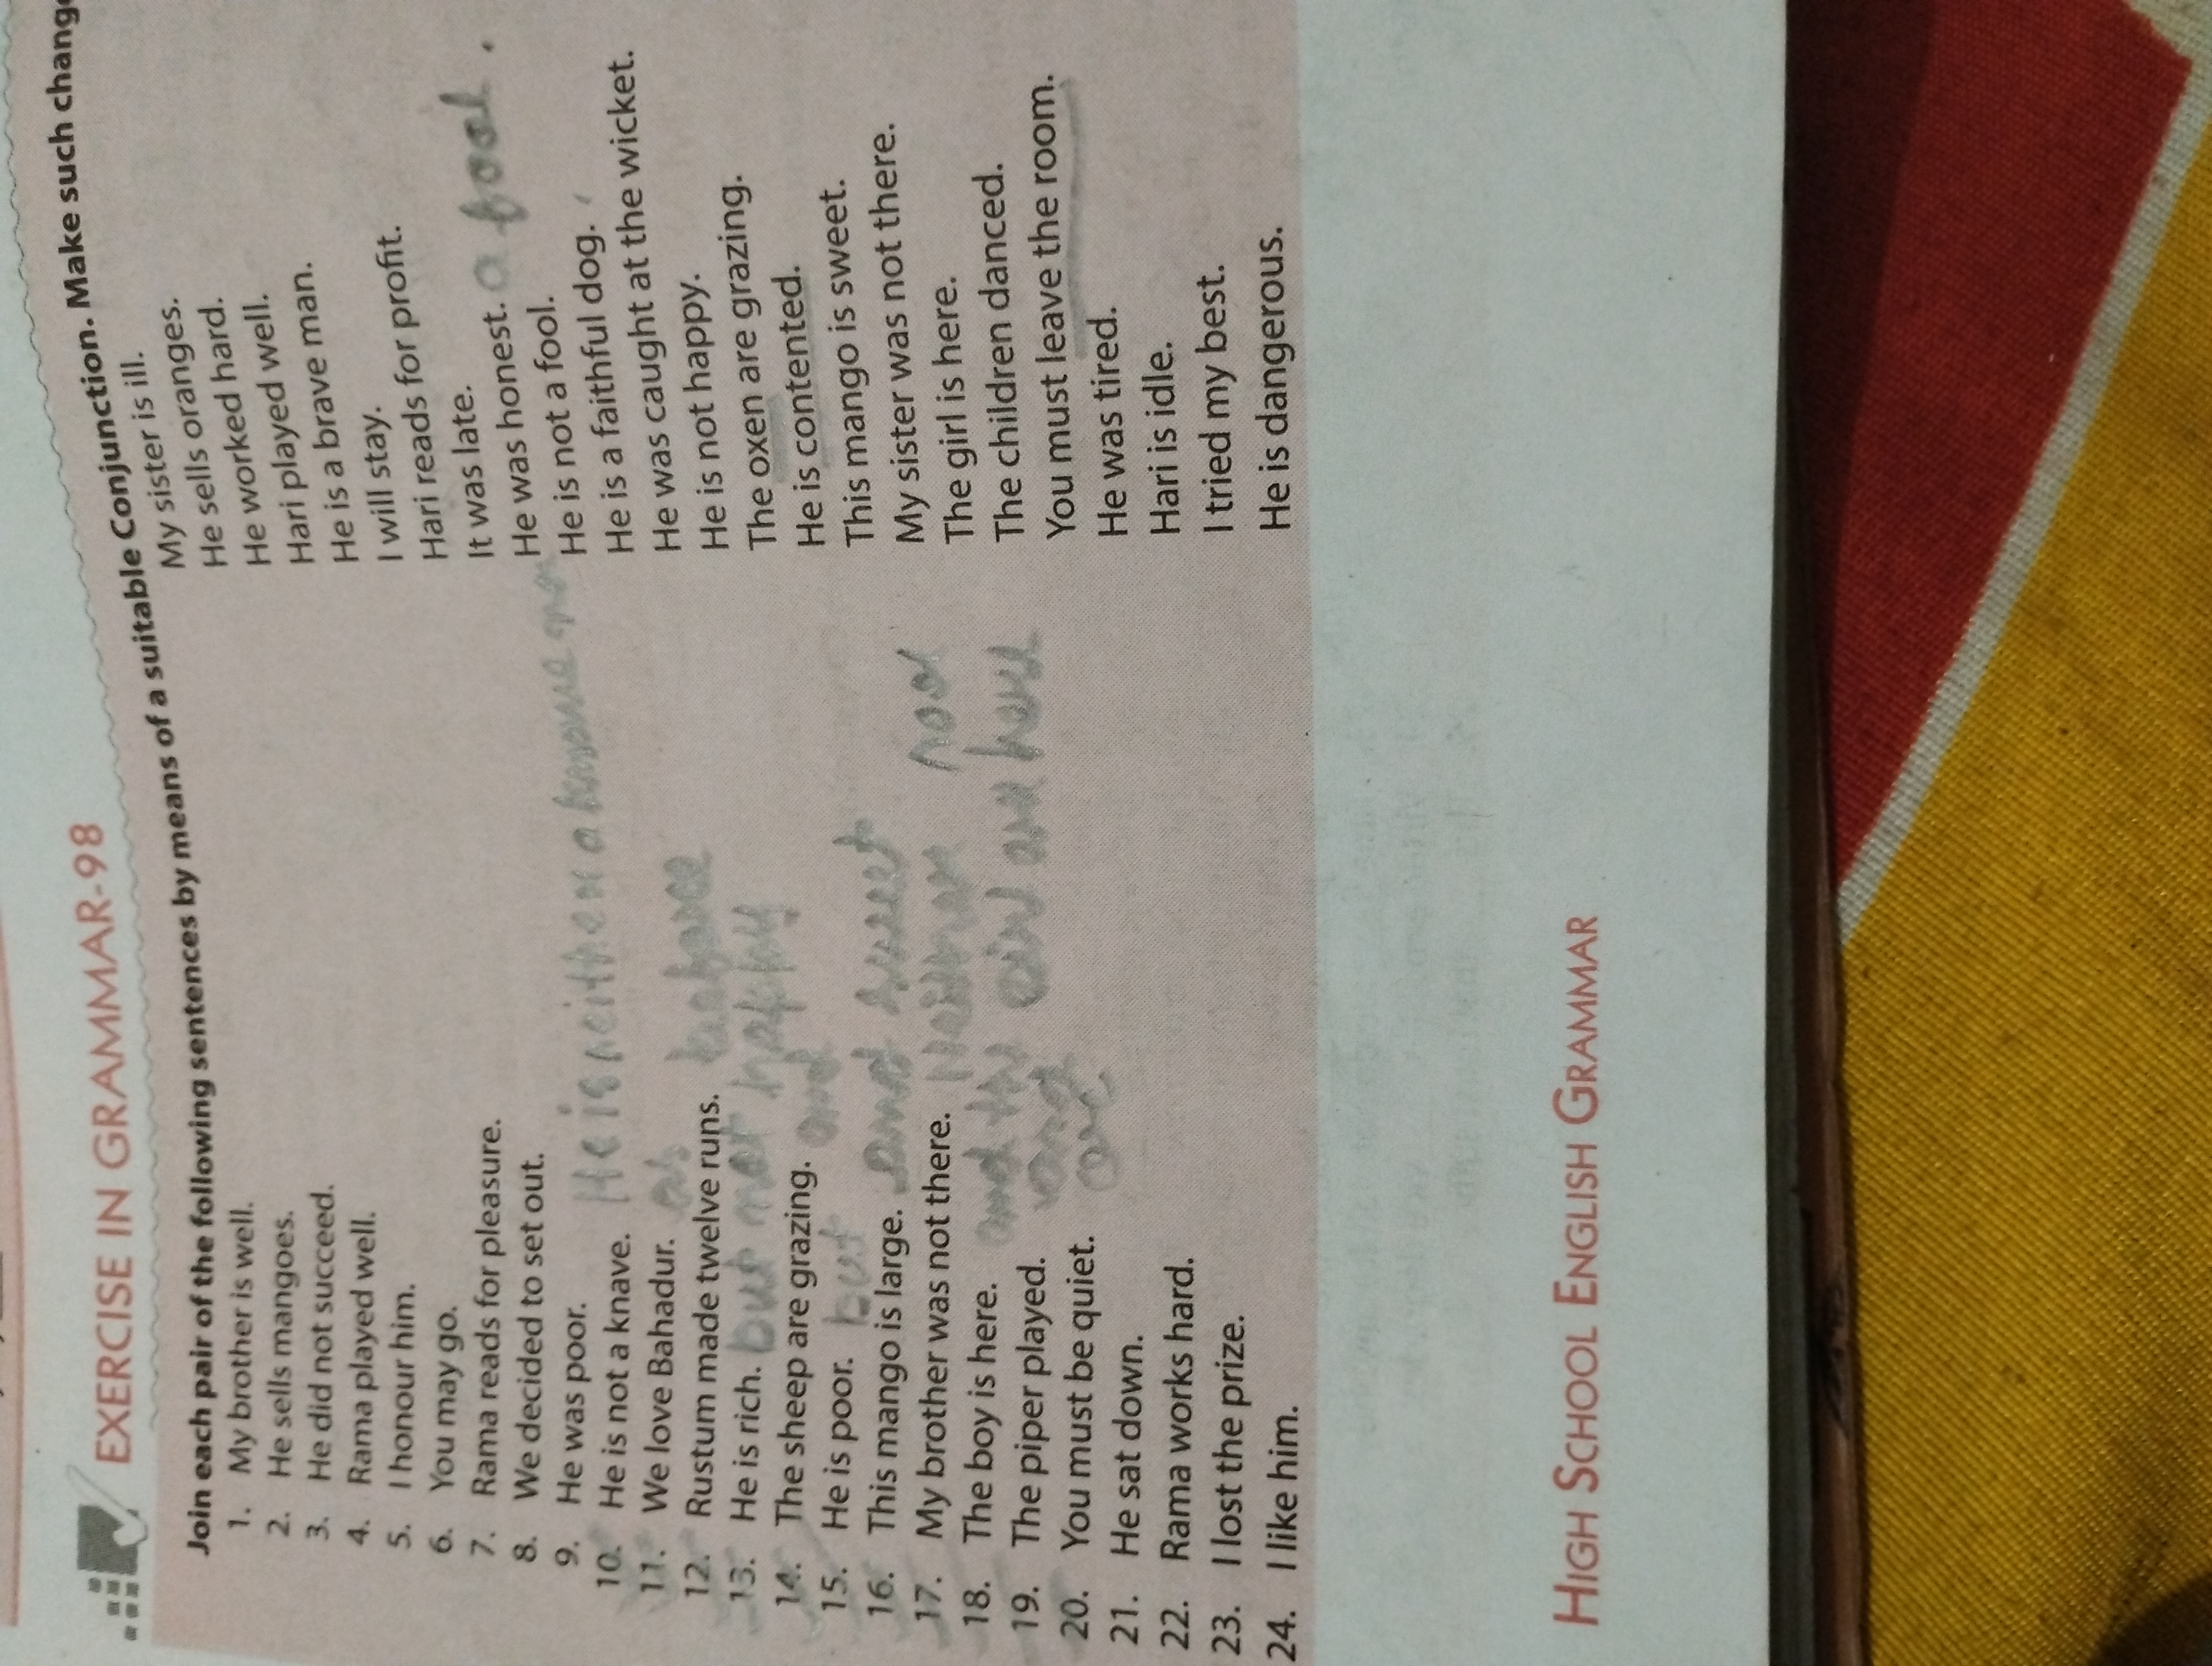 EXERCISE IN GRAMMAR-98
Join each pair of the following sentences by means of a suitable Conjunction. Make such
1. My brother is well. My sister is ill.
2. He sells mangoes. He sells oranges.
3. He did not succeed. He worked hard.
4. Rama played well. Hari played well.
5. I honour him. He is a brave man.
6. You may go. I will stay.
7. Rama reads for pleasure. Hari reads for profit.
8. We decided to set out. It was late. a fool.
9. He was poor. He was honest.
He is neither a
10. He is not a knave. He is not a fool.
11. We love Bahadur. as He is a faithful dog.
12. Rustum made twelve runs. He was caught at the wicket.
13. He is rich. but not happy He is not happy.
14. The sheep are grazing. and The oxen are grazing.
15. He is poor. but He is contented.
16. This mango is large. and sweet This mango is sweet.
17. My brother was not there. nor My sister was not there.
18. The boy is here. and The girl is here.
19. The piper played. The children danced.
20. You must be quiet. You must leave the room.
21. He sat down. He was tired.
22. Rama works hard. Hari is idle.
23. I lost the prize. I tried my best.
24. I like him. He is dangerous.
HIGH SCHOOL ENGLISH GRAMMAR